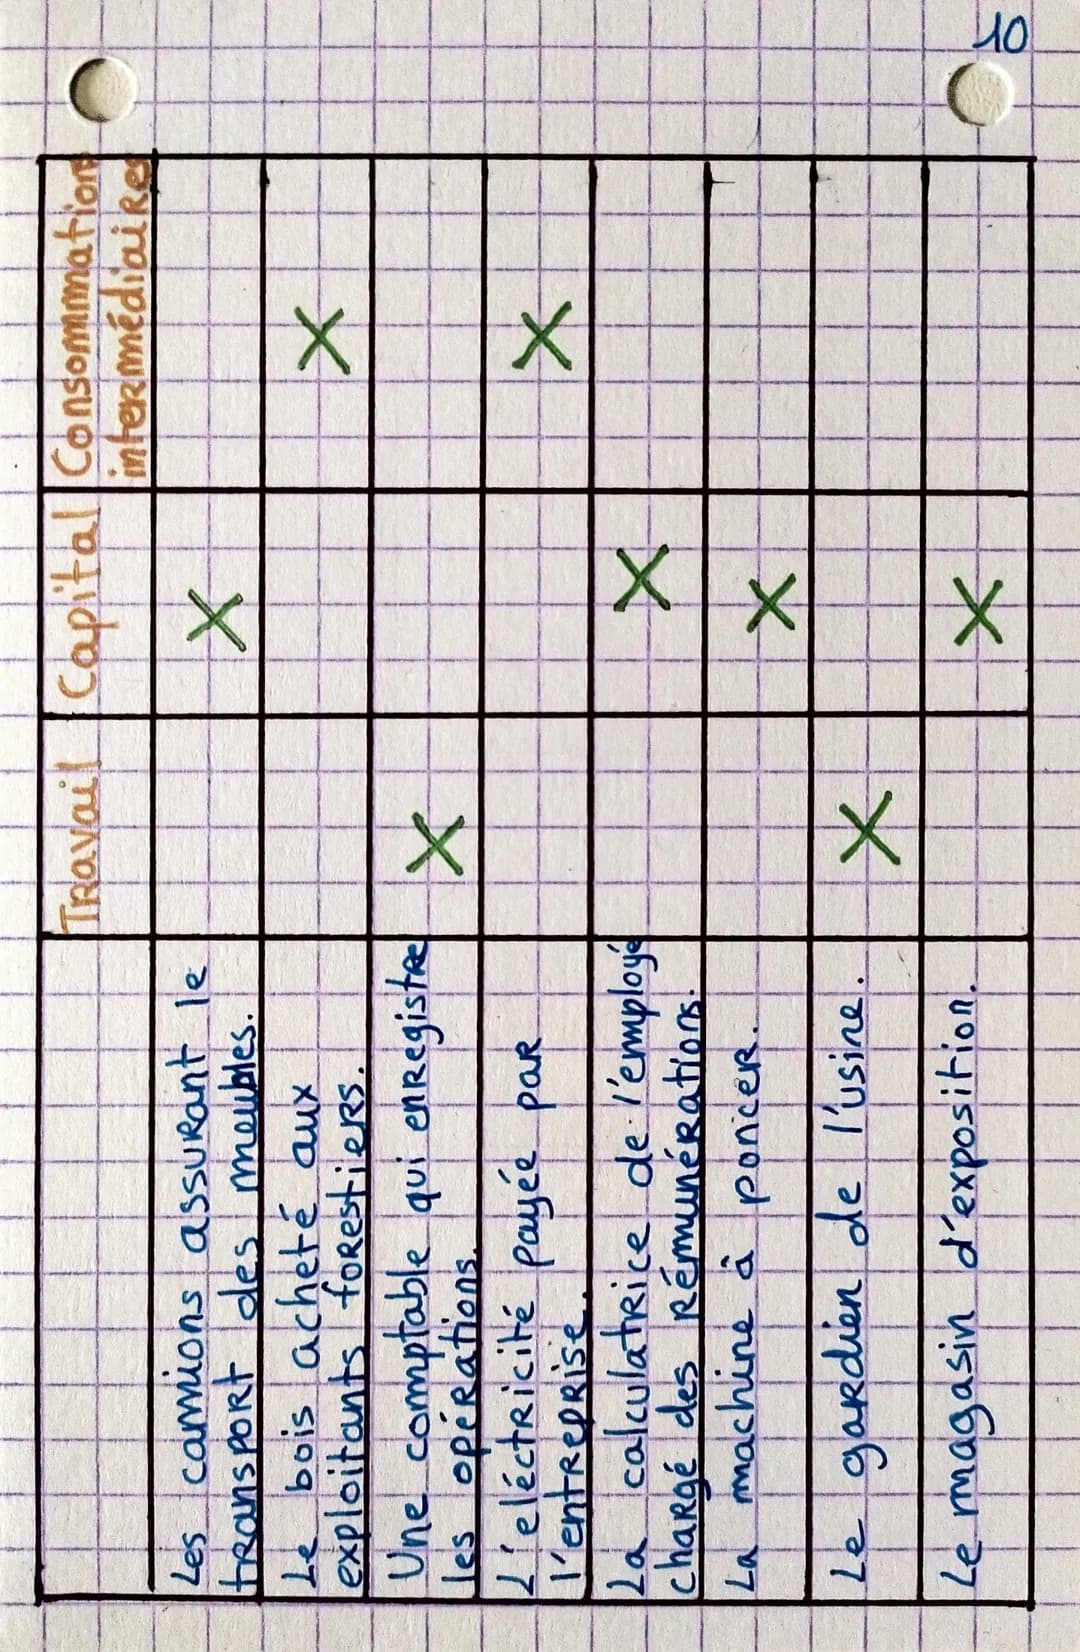 10
Travail
Capital
Consommations
intermédiaires
Les camions assurant le
transport des meubles.
X
Le bois acheté aux
exploitants forestiers.
X
Une comptable qui enregistre
les opérations.
X
L'eléctricité payée par
l'entreprise.
X
La calculatrice de l'employé
chargé des rémunérations.
X
La machine à poncer.
X
Le gardien de l'usine.
X
Le magasin d'exposition.
X